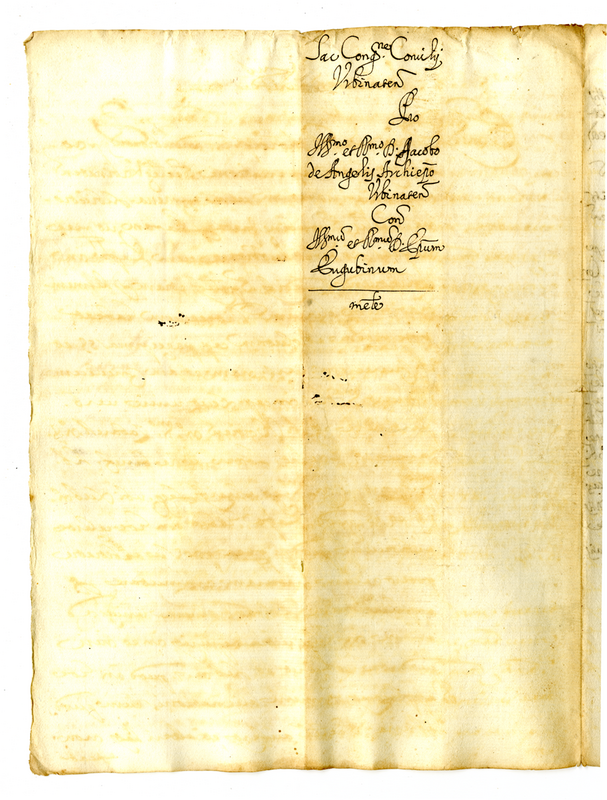 Sac Cong.nes Concilij
Vrbinaten
Pro
Illmo et Rmo D. Jacobo
de Angelis Archiepo
Vrbinaten
Con
Illmũ et Rmũ D. Epum
Eugubinum